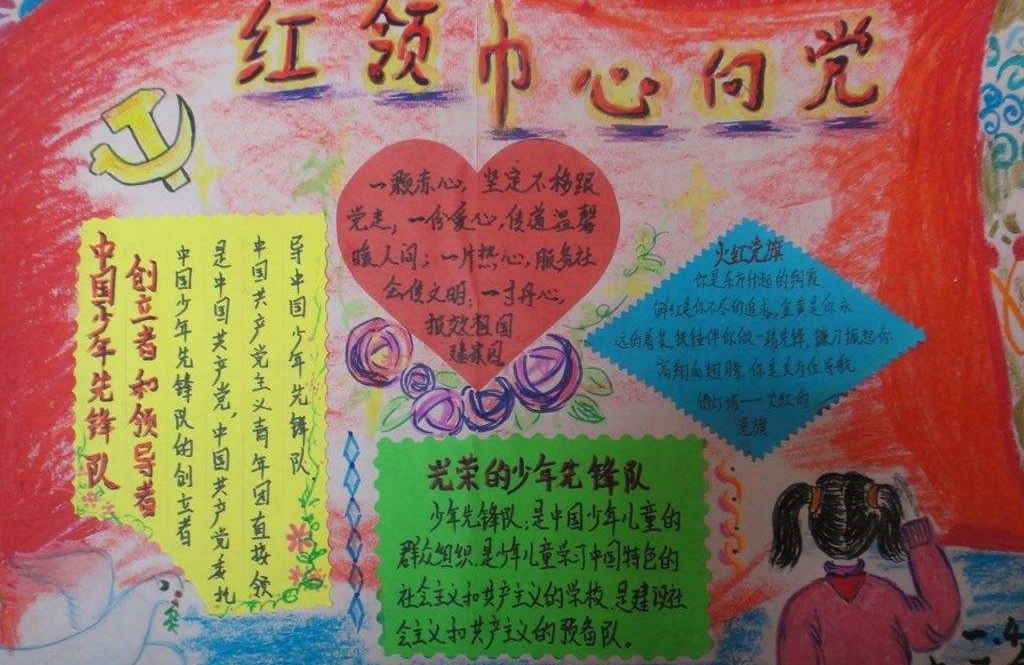 红领巾心向党
中国少年先锋队
创立者和领导者
中国少年先锋队的创立者
是中国共产党,中国共产党委托
中国共产党主义青年团直接领
导中国少年先锋队
一颗赤心,坚定不移跟
党走;一份爱心,传递温馨
暖人间;一片热心,服务社
会传文明;一寸丹心,
报效祖国
火红党旗
你是东方升起的朝霞
鲜红是你不尽的追求,金黄是你永
远的着装,铁锤伴你做一路先锋,镰刀振起你
高翔的翅膀,你是全方位导航
的灯塔——火红的
党旗
光荣的少年先锋队
少年先锋队:是中国少年儿童的
群众组织.是少年儿童学习中国特色的
社会主义和共产主义的学校.是建设社
会主义和共产主义的预备队。
一.4